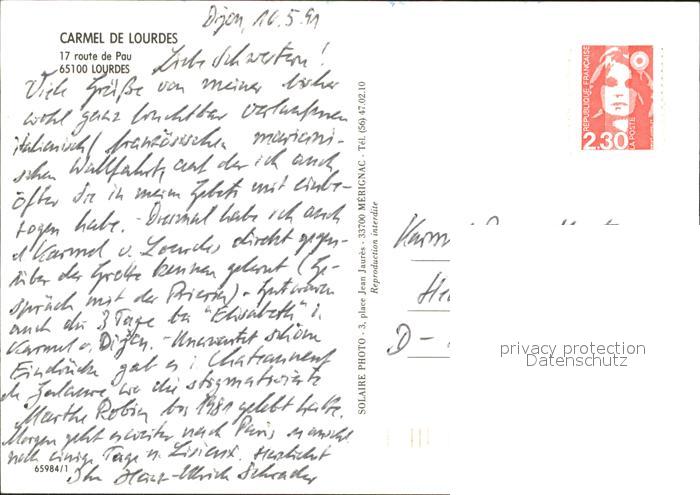 CARMEL DE LOURDES
17 route de Pau
65100 LOURDES
Dijon, 10.5.91
Liebe Schwestern!
Viele Grüße von meiner bisher
wohl ganz fruchtbar verlaufenen
italienisch/französischen mariani-
schen Wallfahrt, auf der ich auch
öfter Sie in mein Gebet mit einbe-
zogen habe. - Diesmal habe ich auch
d Karmel v. Lourdes direkt gegen-
über der Grotte kennen gelernt (Ge-
spräch mit der Priorin) - Gut waren
auch die 3 Tage bei "Elisabeth" i.
Karmel v. Dijon. - Unerwartet schöne
Eindrücke gab es i. Chateauneuf
de Galaure, wo die stigmatisierte
Marthe Robin bis 1981 gelebt hatte.
Morgen geht es weiter nach Paris u
noch einige Tage n. Lisieux. Herzlichst
Ihr Heinz-Ulrich Schrader
65984/1
SOLAIRE PHOTO - 3, place Jean Jaurès - 33700 MÉRIGNAC - Tél. (56) 47.02.10
Reproduction interdite
RÉPUBLIQUE FRANÇAISE
2,30
LA POSTE
D-
privacy protection
Datenschutz